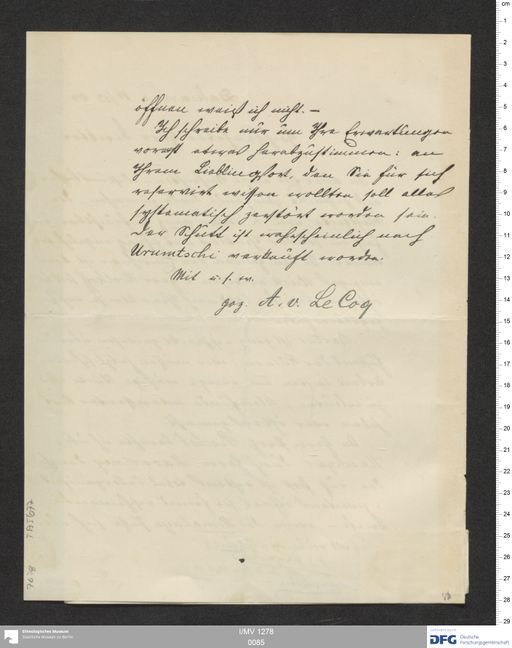 öffnen weiß ich nicht. –
Ich schreibe nur um Ihre Erwartungen
vorerst etwas herabzustimmen: an
Ihrem Lieblingsort, den Sie für sich
reservirt wissen wollten soll alles
systematisch zerstört worden sein.
Der Schutt ist wahrscheinlich nach
Urumtschi verkauft worden.
Mit u. s. w.
gez. A. v. Le Coq
Ethnologisches Museum
Staatliche Museen zu Berlin
I/MV 1278
0085
DFG
Deutsche
Forschungsgemeinschaft